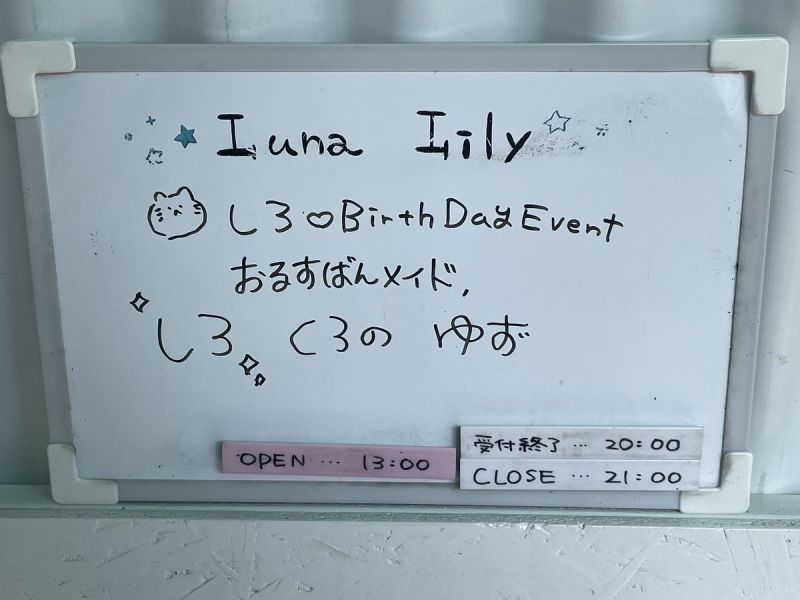 Luna Lily
しろ♡BirthDayEvent
おるすばんメイド,
しろ くろの ゆず
OPEN … 13:00
受付終了 … 20:00
CLOSE … 21:00